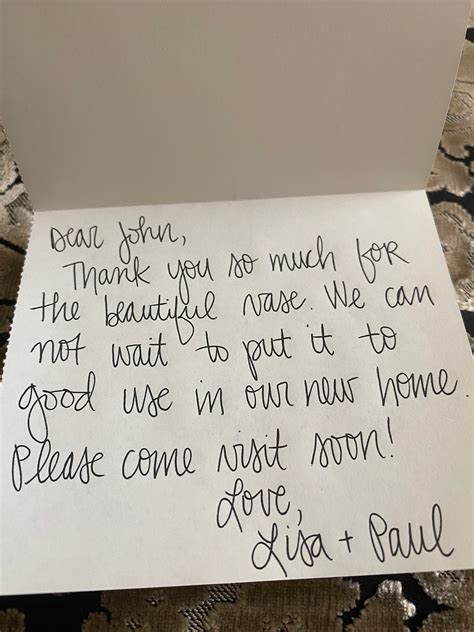 Dear John,
Thank you so much for
the beautiful vase. We can
not wait to put it to
good use in our new home.
Please come visit soon!
Love,
Lisa + Paul